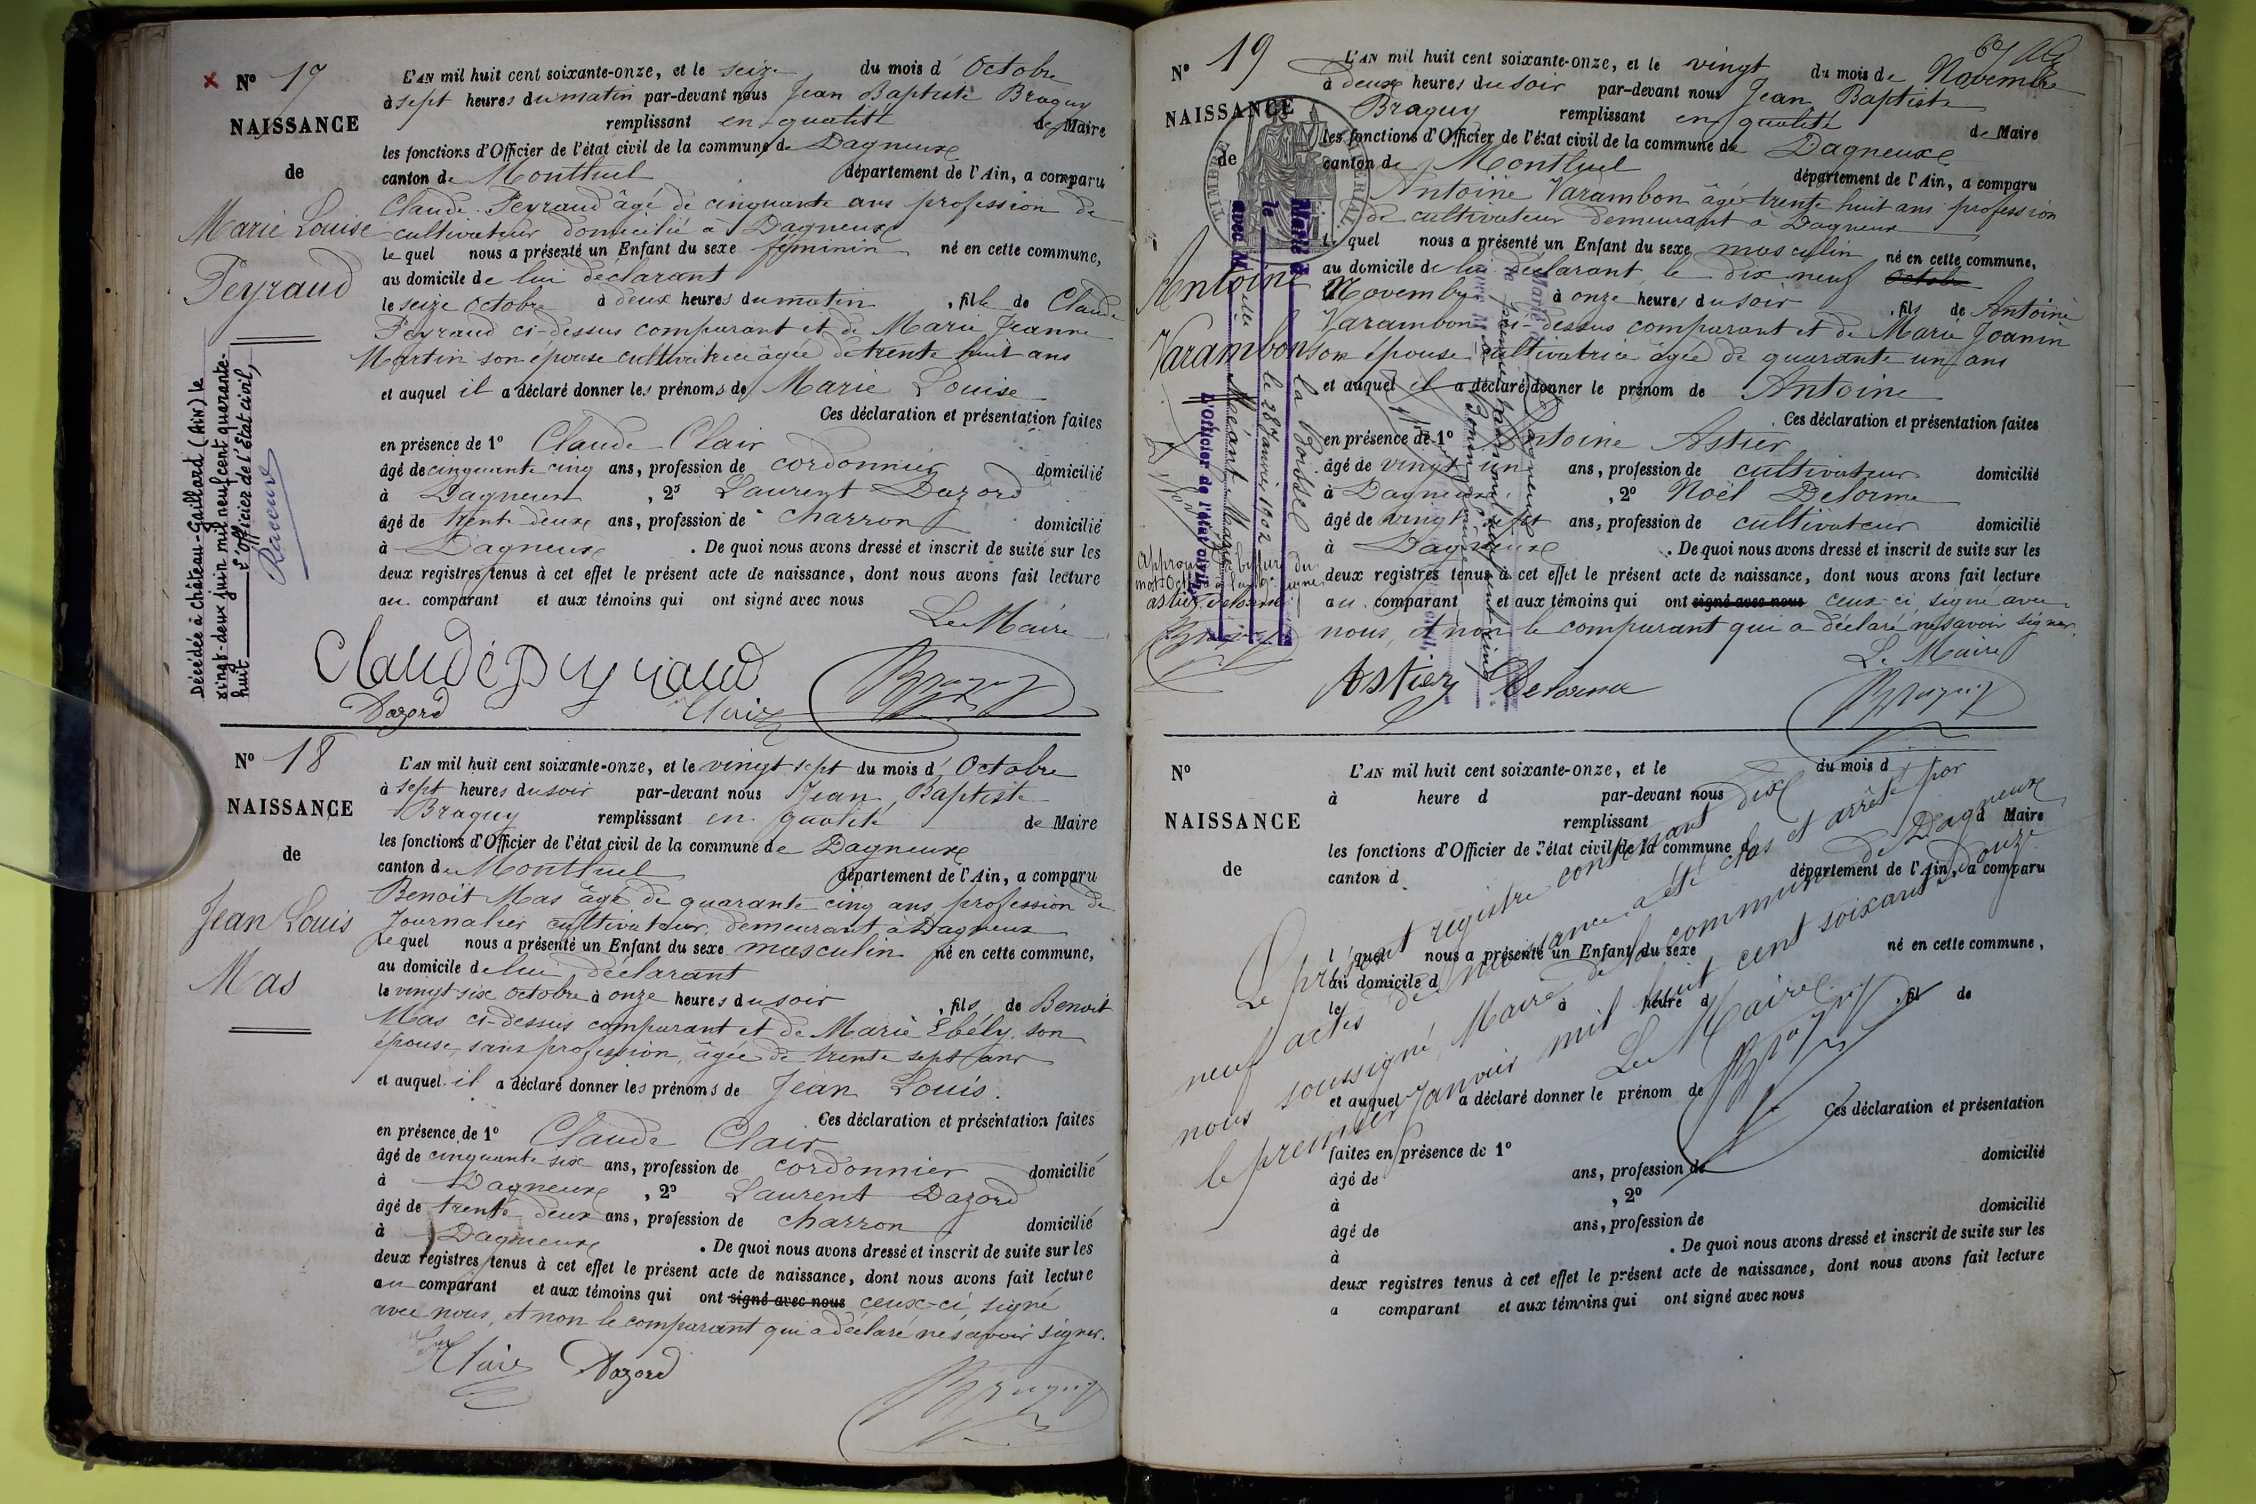 N° 17
NAISSANCE
de
Marie Louise
Peyraud
Décédée à Château-Gaillard (Ain) le
vingt-deux juin mil neuf cent quarante-
huit L'officier de l'état civil,
L'AN mil huit cent soixante-onze, et le seize du mois d' Octobre
à sept heures du matin par-devant nous Jean Baptiste Braguy
remplissant en qualité de Maire
les fonctions d'Officier de l'état civil de la commune de Dagneux
canton de Montluel département de l'Ain, a comparu
Claude Peyraud âgé de cinquante ans profession de
cultivateur domicilié à Dagneux
le quel nous a présenté un Enfant du sexe féminin né en cette commune,
au domicile de lui déclarant
le seize octobre à deux heures du matin, fille de Claude
Peyraud ci-dessus comparant et de Marie Jeanne
Martin son épouse cultivatrice âgée de trente huit ans
et auquel il a déclaré donner les prénoms de Marie Louise
Ces déclaration et présentation faites
en présence de 1° Claude Clair
âgé de cinquante cinq ans, profession de cordonnier domicilié
à Dagneux, 2° Laurent Dazord
âgé de trente deux ans, profession de charron domicilié
à Dagneux. De quoi nous avons dressé et inscrit de suite sur les
deux registres tenus à cet effet le présent acte de naissance, dont nous avons fait lecture
au comparant et aux témoins qui ont signé avec nous
Le Maire
Claude Peyraud
Dazord Clair Braguy
N° 18
NAISSANCE
de
Jean Louis
Mas
L'AN mil huit cent soixante-onze, et le vingt sept du mois d' Octobre
à sept heures du soir par-devant nous Jean Baptiste
Braguy remplissant en qualité de Maire
les fonctions d'Officier de l'état civil de la commune de Dagneux
canton de Montluel département de l'Ain, a comparu
Benoît Mas âgé de quarante cinq ans profession de
Journalier cultivateur, demeurant à Dagneux
le quel nous a présenté un Enfant du sexe masculin né en cette commune,
au domicile de lui déclarant
le vingt six octobre à onze heures du soir, fils de Benoit
Mas ci-dessus comparant et de Marie Ebély son
épouse, sans profession, âgée de trente sept ans
et auquel il a déclaré donner les prénoms de Jean Louis.
Ces déclaration et présentation faites
en présence de 1° Claude Clair
âgé de cinquante six ans, profession de cordonnier domicilié
à Dagneux, 2° Laurent Dazord
âgé de trente deux ans, profession de charron domicilié
à Dagneux. De quoi nous avons dressé et inscrit de suite sur les
deux registres tenus à cet effet le présent acte de naissance, dont nous avons fait lecture
au comparant et aux témoins qui ont signé avec nous ceux-ci signé
avec nous, et non le comparant qui a déclaré ne savoir signer.
Clair Dazord Braguy
N° 19
NAISSANCE
de
TIMBRE IMPÉRIAL
Antoine
Varambon
L'AN mil huit cent soixante-onze, et le vingt du mois de Novembre
à deux heures du soir par-devant nous Jean Baptiste
Braguy remplissant en qualité de Maire
les fonctions d'Officier de l'état civil de la commune de Dagneux
canton de Montluel département de l'Ain, a comparu
Antoine Varambon âgé trente huit ans profession
de cultivateur demeurant à Dagneux
le quel nous a présenté un Enfant du sexe masculin né en cette commune,
au domicile de lui déclarant le dix neuf Octobre
Novembre à onze heures du soir, fils de Antoine
Varambon ci-dessus comparant et de Marie Joanin
son épouse cultivatrice âgée de quarante un ans
et auquel il a déclaré donner le prénom de Antoine
Ces déclaration et présentation faites
en présence de 1° Antoine Astier
âgé de vingt un ans, profession de cultivateur domicilié
à Dagneux, 2° Noël Delorme
âgé de vingt sept ans, profession de cultivateur domicilié
à Dagneux. De quoi nous avons dressé et inscrit de suite sur les
deux registres tenus à cet effet le présent acte de naissance, dont nous avons fait lecture
au comparant et aux témoins qui ont signé avec nous ceux-ci signé avec
nous, et non le comparant qui a déclaré ne savoir signer.
Le Maire
Astier Delorme Braguy
Marié à la Boisse
le 28 Janvier 1902
avec M
L'Officier de l'état civil,
Marié à Dagneux
N°
NAISSANCE
de
L'AN mil huit cent soixante-onze, et le du mois d
à heure d par-devant nous
remplissant d Maire
les fonctions d'Officier de l'état civil de la commune d
canton d département de l'Ain, a comparu
l quel nous a présenté un Enfant du sexe né en cette commune,
au domicile d
le à heure d, fil de
et auquel a déclaré donner le prénom de
Ces déclaration et présentation
faites en présence de 1°
âgé de ans, profession de domicilié
à, 2°
âgé de ans, profession de domicilié
à. De quoi nous avons dressé et inscrit de suite sur les
deux registres tenus à cet effet le présent acte de naissance, dont nous avons fait lecture
a comparant et aux témoins qui ont signé avec nous
Le présent registre contenant dix
neuf actes de naissance a été clos et arrêté par
nous soussigné, Maire de la commune de Dagneux
le premier Janvier mil huit cent soixante douze.
Le Maire
Braguy